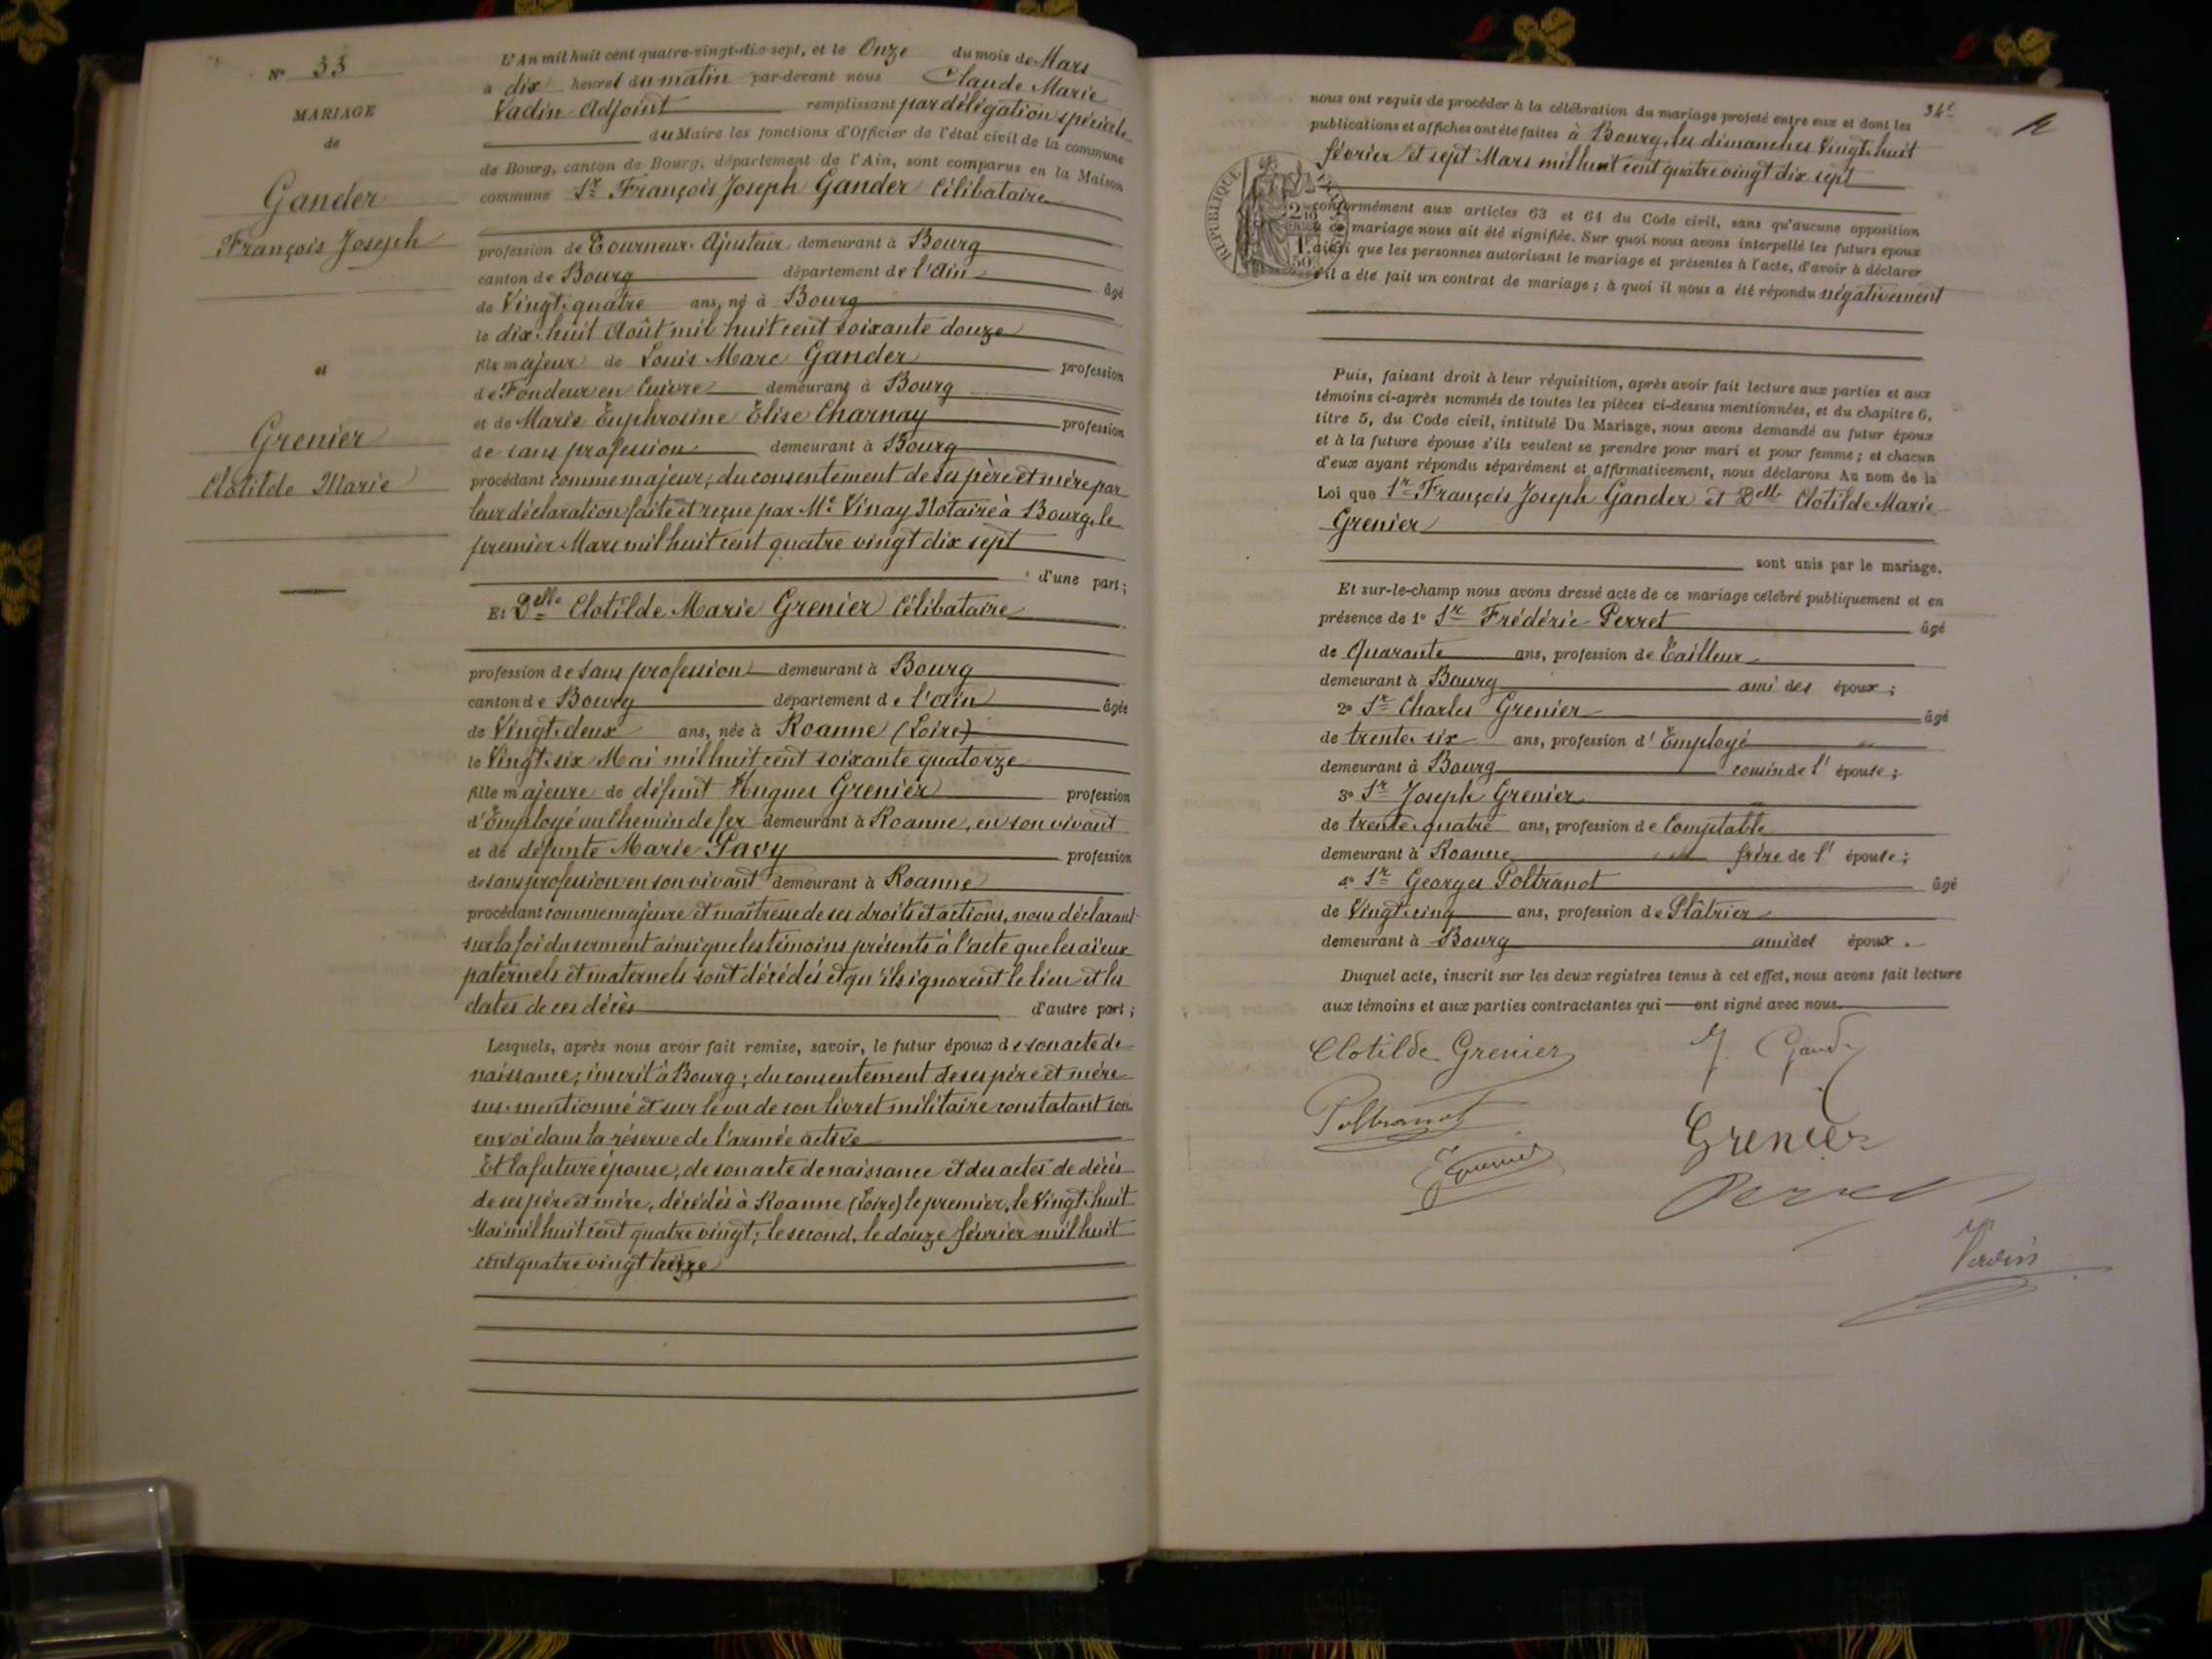 N° 33
MARIAGE
de
Gander
François Joseph
et
Grenier
Clotilde Marie
L'An mil huit cent quatre-vingt-dix sept, et le Onze du mois de Mars
à dix heures du matin par-devant nous Claude Marie
Vadin Adjoint remplissant par délégation spéciale
du Maire les fonctions d'Officier de l'état civil de la commune
de Bourg, canton de Bourg, département de l'Ain, sont comparus en la Maison
commune Sr François Joseph Gander Célibataire
profession de Tourneur-Ajusteur demeurant à Bourg
canton de Bourg département de l'Ain âgé
de Vingt-quatre ans, né à Bourg
le dix-huit Août mil huit cent soixante douze
fils majeur de Louis Marc Gander profession
de Fondeur en Cuivre demeurant à Bourg
et de Marie Euphrosine Elise Charnay profession
de sans profession demeurant à Bourg
procédant comme majeur, du consentement de ses père et mère par
leur déclaration faite et reçue par Me Vinay Notaire à Bourg, le
premier Mars mil huit cent quatre vingt dix sept
d'une part;
Et Delle Clotilde Marie Grenier Célibataire
profession de sans profession demeurant à Bourg
canton de Bourg département de l'Ain âgée
de Vingt-deux ans, née à Roanne (Loire)
le Vingt-six Mai mil huit cent soixante quatorze
fille majeure de défunt Hugues Grenier profession
d'Employé au Chemin de fer demeurant à Roanne, en son vivant
et de défunte Marie Pavy profession
de sans profession en son vivant demeurant à Roanne
procédant comme majeure et maîtresse de ses droits et actions, nous déclarant
sur la foi du serment ainsi que les témoins présents à l'acte que les aïeux
paternels et maternels sont décédés et qu'ils ignorent le lieu et les
dates de ces décès d'autre part;
Lesquels, après nous avoir fait remise, savoir, le futur époux de son acte de
naissance; inscrit à Bourg; du consentement de ses père et mère
sus-mentionné et sur le vu de son livret militaire constatant son
envoi dans la réserve de l'armée active
Et la future épouse, de son acte de naissance et des actes de décès
de ses père et mère, décédés à Roanne (Loire) le premier, le Vingt-huit
Mai mil huit cent quatre vingt; le second, le douze février mil huit
cent quatre vingt treize
34e
nous ont requis de procéder à la célébration du mariage projeté entre eux et dont les
publications et affiches ont été faites à Bourg, les dimanches Vingt-huit
février et sept Mars mil huit cent quatre vingt dix sept
REPUBLIQUE
conformément aux articles 63 et 64 du Code civil, sans qu'aucune opposition
à ce mariage nous ait été signifiée. Sur quoi nous avons interpellé les futurs époux
ainsi que les personnes autorisant le mariage et présentes à l'acte, d'avoir à déclarer
s'il a été fait un contrat de mariage; à quoi il nous a été répondu négativement
Puis, faisant droit à leur réquisition, après avoir fait lecture aux parties et aux
témoins ci-après nommés de toutes les pièces ci-dessus mentionnées, et du chapitre 6,
titre 5, du Code civil, intitulé Du Mariage, nous avons demandé au futur époux
et à la future épouse s'ils veulent se prendre pour mari et pour femme; et chacun
d'eux ayant répondu séparément et affirmativement, nous déclarons Au nom de la
Loi que Sr François Joseph Gander et Delle Clotilde Marie
Grenier
sont unis par le mariage.
Et sur-le-champ nous avons dressé acte de ce mariage célébré publiquement et en
présence de 1° Sr Frédéric Perret âgé
de Quarante ans, profession de Tailleur
demeurant à Bourg ami des époux;
2° Sr Charles Grenier âgé
de trente-six ans, profession d'Employé
demeurant à Bourg cousin de l'épouse;
3° Sr Joseph Grenier
de trente-quatre ans, profession de Comptable
demeurant à Roanne frère de l'épouse;
4° Sr Georges Poltranot âgé
de Vingt-cinq ans, profession de Plâtrier
demeurant à Bourg ami des époux.
Duquel acte, inscrit sur les deux registres tenus à cet effet, nous avons fait lecture
aux témoins et aux parties contractantes qui ont signé avec nous.
Clotilde Grenier
Poltranot
Grenier
Perret